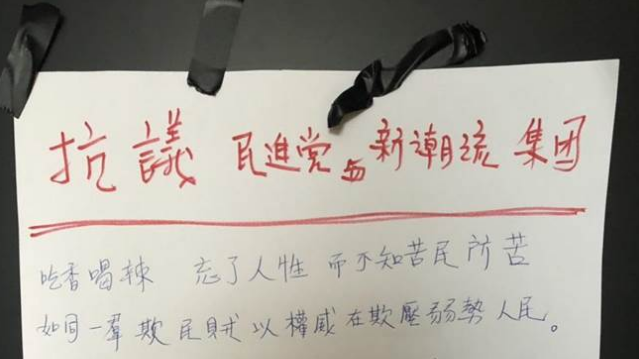 抗議 民進党与新潮流集团
吃香喝辣 忘了人性 而不知苦民所苦
如同一羣欺民賊以權威在欺壓弱勢人民。